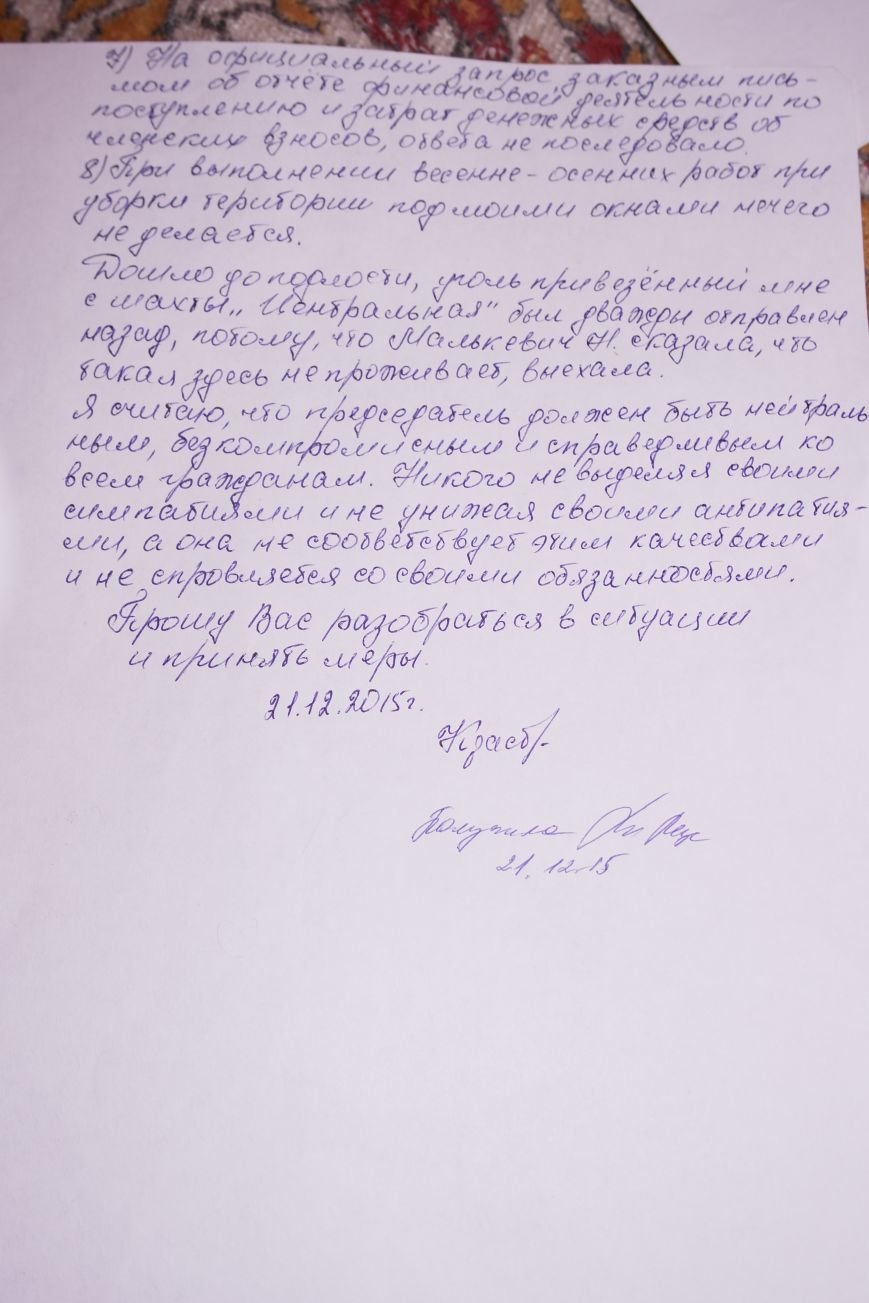 7) На официальный запрос заказным пись-
мом об отчёте финансовой деятельности по
поступлению и затрат денежных средств об
членских взносов, ответа не последовало.
8) При выполнении весенне-осенних работ при
уборки територии под моими окнами нечего
не делается.
Дошло до подлости, уголь привезённый мне
с шахты „Центральная" был дважды отправлен
назад, потому, что Малькевич Н. сказала, что
такая здесь не проживает, выехала.
Я считаю, что председатель должен быть нейтраль
ным, безкомпромисным и справедливым ко
всем гражданам. Никого не выделяя своими
симпатиями и не унижая своими антипатия-
ми, а она не соответствует этим качествами
и не справляется со своими обязанностями.
Прошу Вас разобраться в ситуации
и принять меры.
21.12.2015г.
Получила
21.12.15